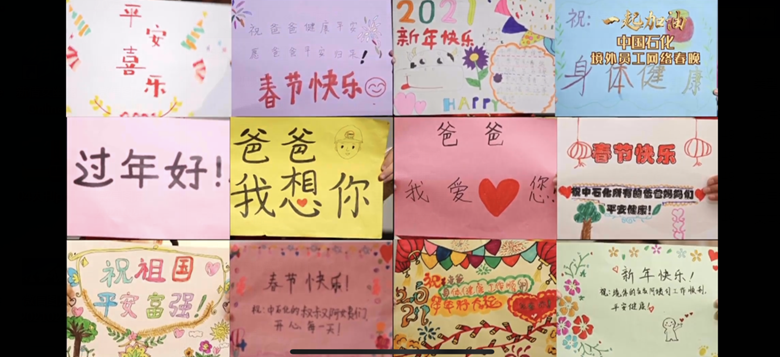 平安
喜乐
祝爸爸健康平安
春节快乐
2021
新年快乐
HAPPY
祝:
身体健康
一起加油
中国石化
境外员工网络春晚
过年好!
爸爸
我想你
爸爸
我爱您
春节快乐
祝中石化所有的爸爸妈妈们
平安健康!
祝祖国
平安富强!
春节快乐!
祝:中石化的叔叔及阿姨们
开心每一天!
祝爸爸
身体健康工作顺利
2021
新年快乐!
平安健康!